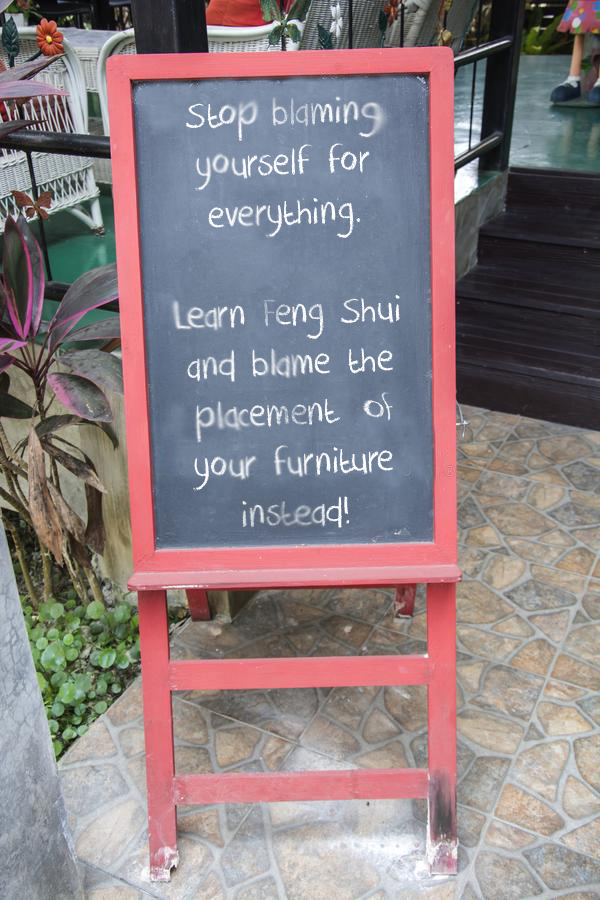 Stop blaming
yourself for
everything.
Learn Feng Shui
and blame the
placement of
your furniture
instead!